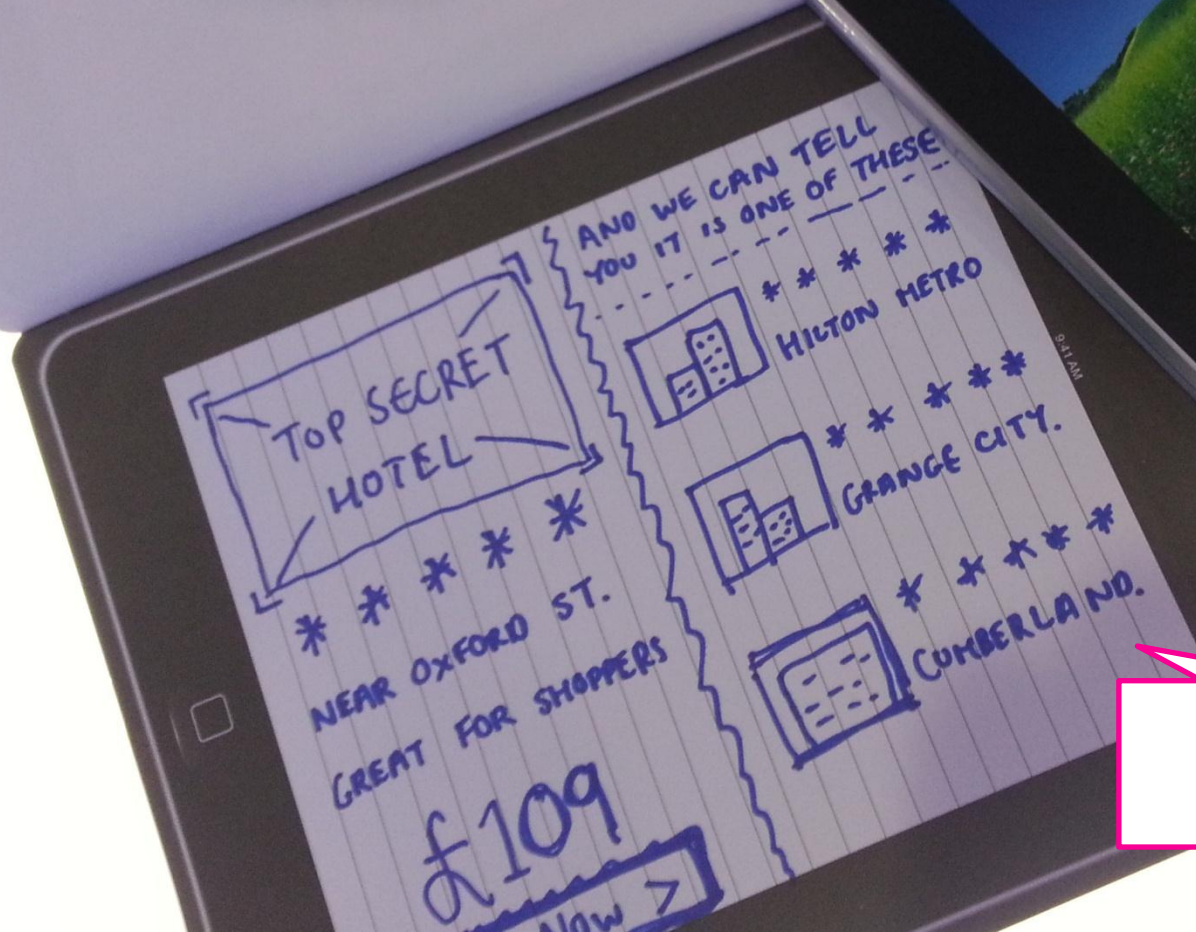 TOP SECRET
HOTEL
* * * * *
NEAR OXFORD ST.
GREAT FOR SHOPPERS
£109
Now >
AND WE CAN TELL
YOU IT IS ONE OF THESE
* * * * *
HILTON METRO
* * * * *
GRANGE CITY.
* * * * *
CUMBERLAND.
9:41 AM